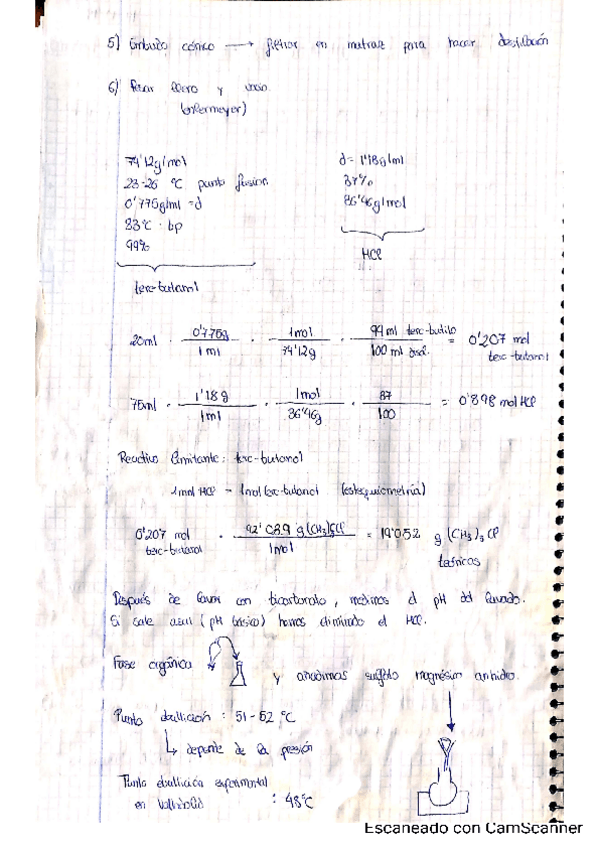 5) Embudo cónico → filtrar en matraz para hacer destilación
6) Pesar llero y vacío
(enlermeyer)
74'12g/mol
23-26 °C punto fusión
0'775g/ml = d
83°C · bp
99%
terc-butanol
d = 1'18g/ml
37%
36'46g/mol
HCl
20ml · 0'775g / 1ml · 1mol / 74'12g · 99ml terc-butilo / 100 ml disol. = 0'207 mol terc-butanol
75ml · 1'18g / 1ml · 1mol / 36'46g · 37 / 100 = 0'898 mol HCl
Reactivo limitante: terc-butanol
1mol HCl - 1mol terc-butanol (estequiometría)
0'207 mol terc-butanol · 92'089 g (CH3)3CCl / 1mol = 19'052 g (CH3)3Cl teóricos
Después de lavar con bicarbonato, medimos el pH del lavado.
Si sale azul (pH básico) hemos eliminado el HCl.
Fase orgánica y añadimos sulfato magnésico anhidro.
Punto ebullición : 51-52 °C
↳ depende de la presión
Punto ebullición experimental
en Valladolid : 48°C
Escaneado con CamScanner